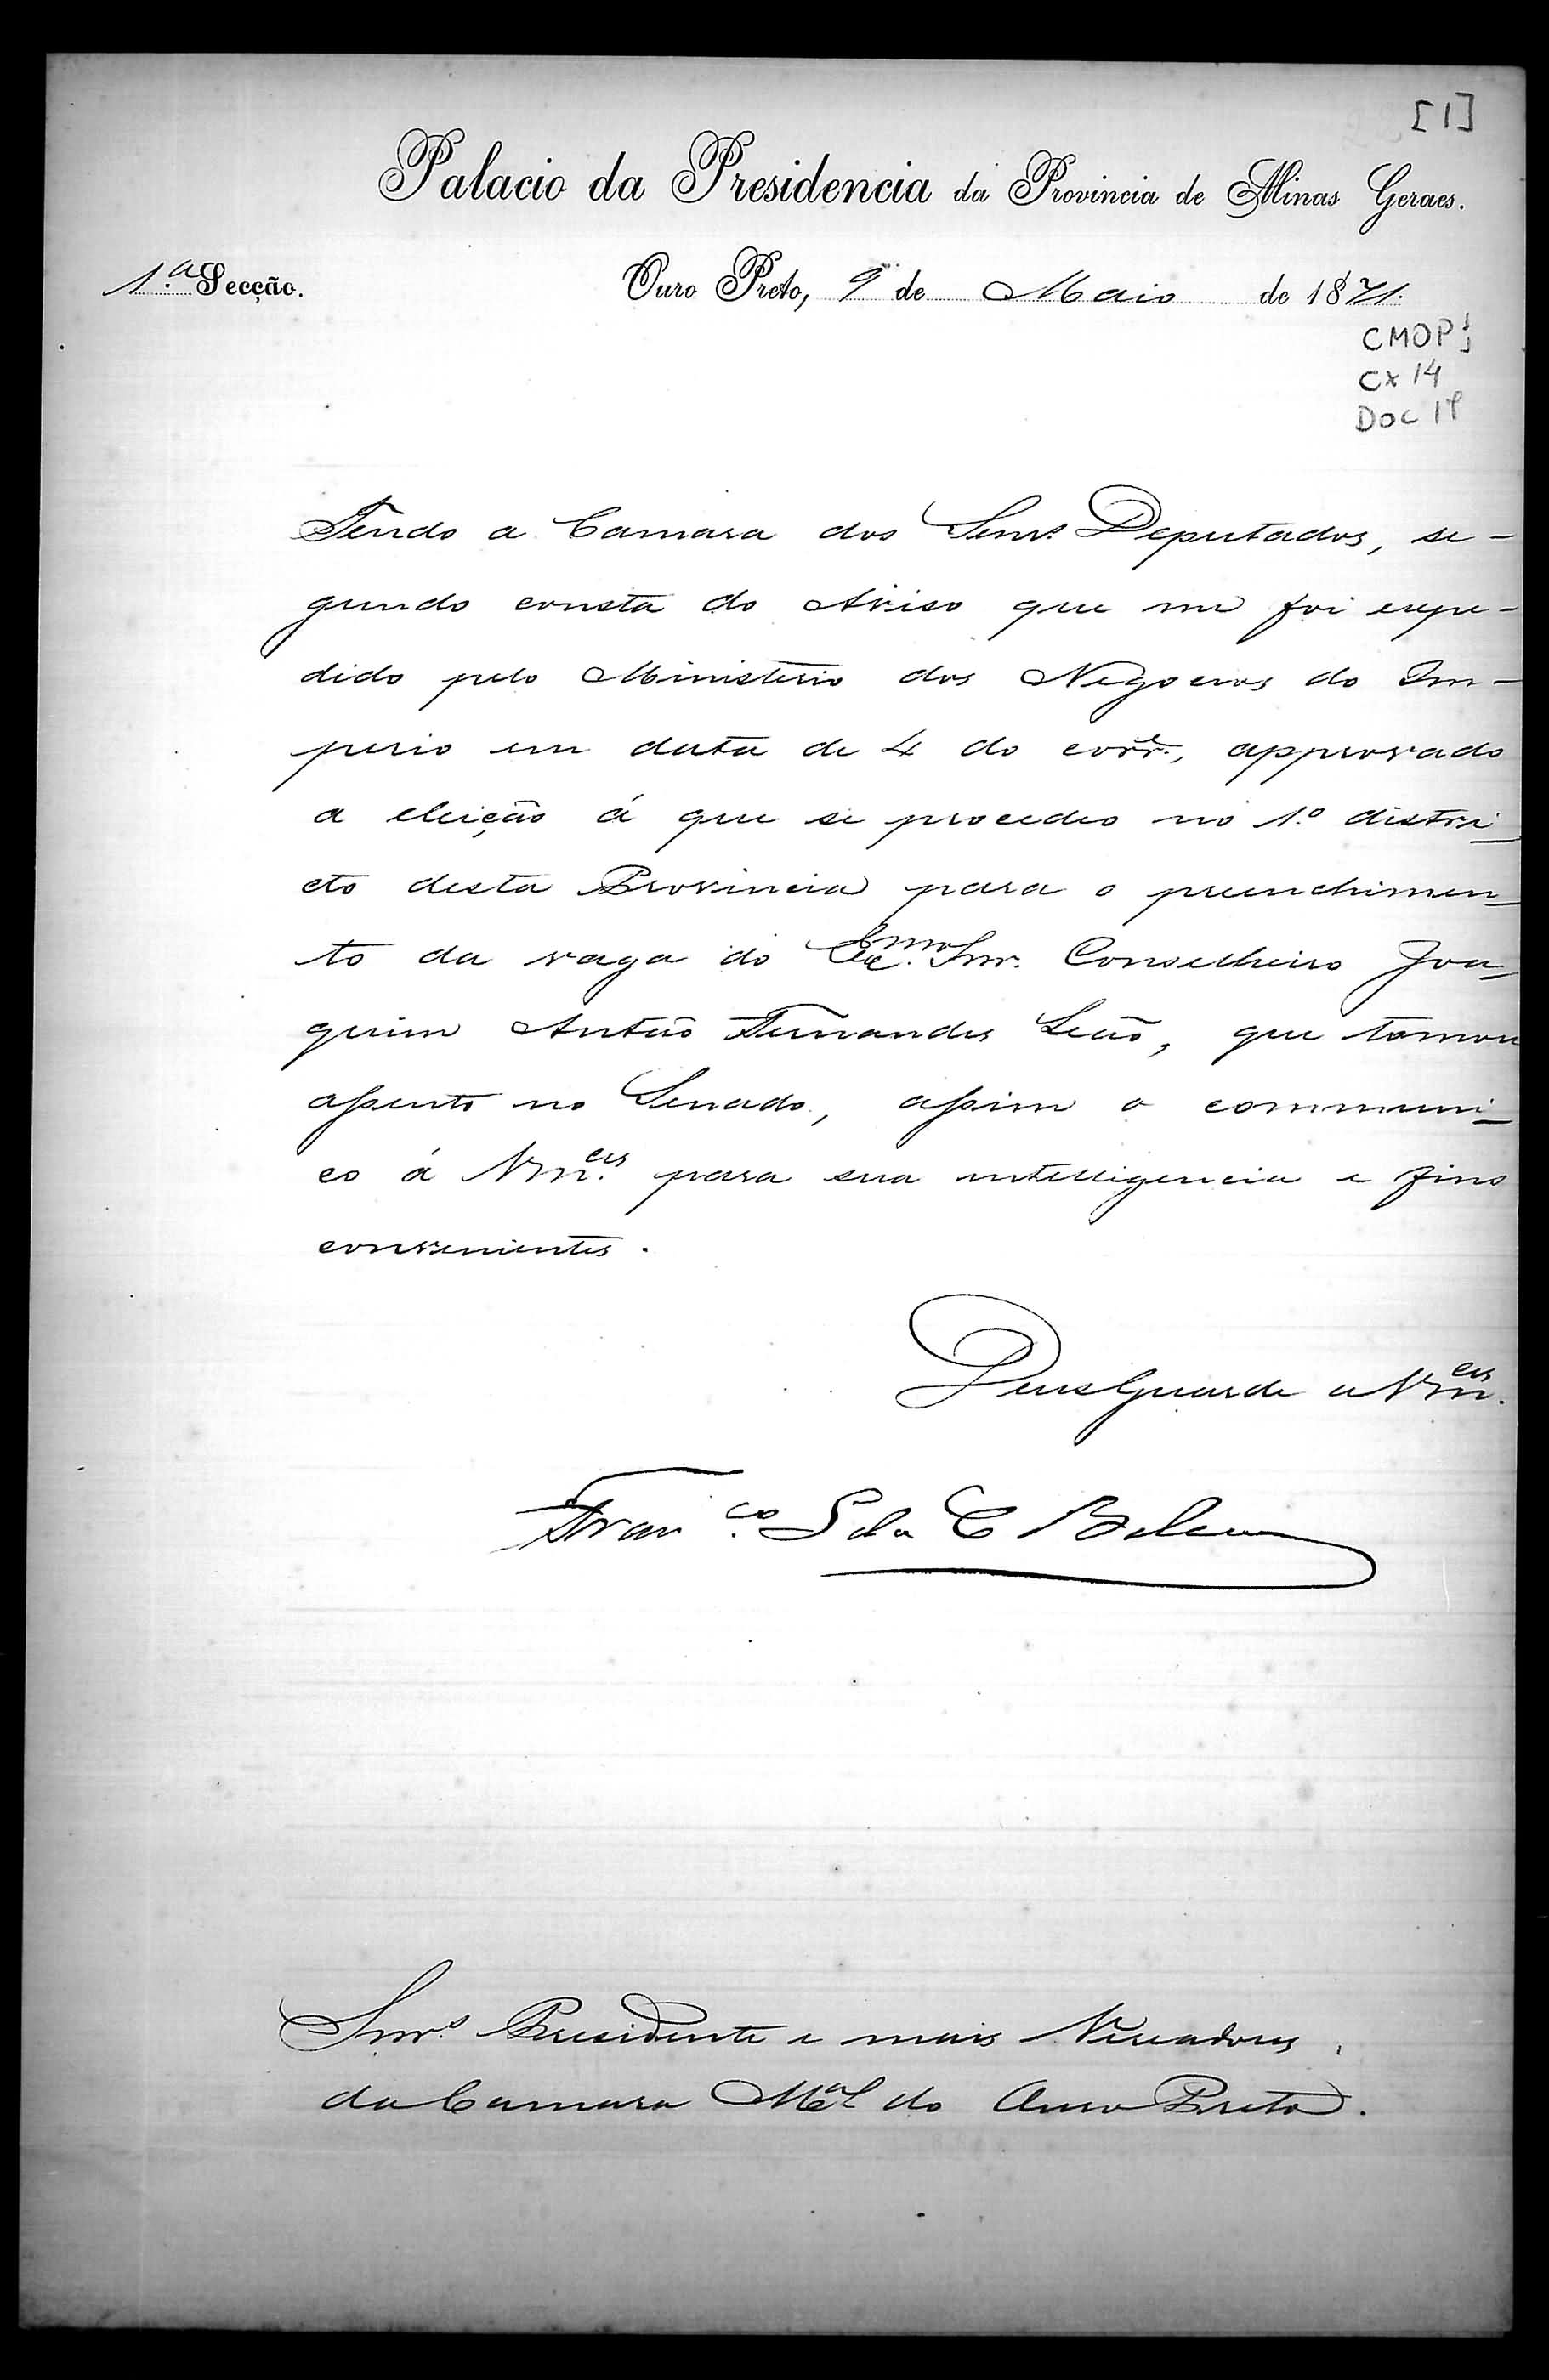 [1]
Palacio da Presidencia da Provincia de Minas Geraes.
1.ª Secção. Ouro Preto, 9 de Maio de 1871.
CMOP
Cx 14
DOC
Tendo a Camara dos Senrs. Deputados, se-
gundo consta do Aviso que me foi expe-
dido pelo Ministerio dos Negocios do Im-
perio em data de 4 do corre., approvado
a eleição á que se procedeo no 1.º distri-
cto desta Provincia para o preenchimen-
to da vaga do Exmo. Snr. Conselheiro Joa-
quim Antão Fernandes Leão, que tomou
assento no Senado, assim o communi-
co á Vmces. para sua intelligencia e fins
convenientes.
Deus Guarde a Vmces.
Franco. S da C Belem
Snrs. Presidente e mais Vereadores
da Camara Mal do Ouro Preto.